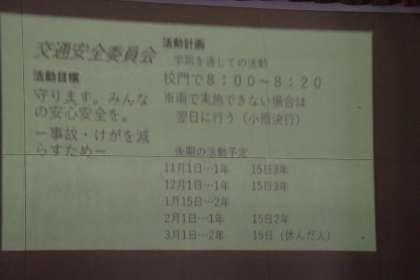 交通安全委員会
活動目標
守ります。みんな
の安心安全を。
ー事故・けがを減
らすためー
活動計画
学期を通しての活動
校門で８：００～８：２０
※雨で実施できない場合は
翌日に行う（小雨決行）
後期の活動予定
11月1日…1年 15日3年
12月1日…1年 15日3年
1月15日…2年
2月1日…1年 15日2年
3月1日…2年 15日（休んだ人）